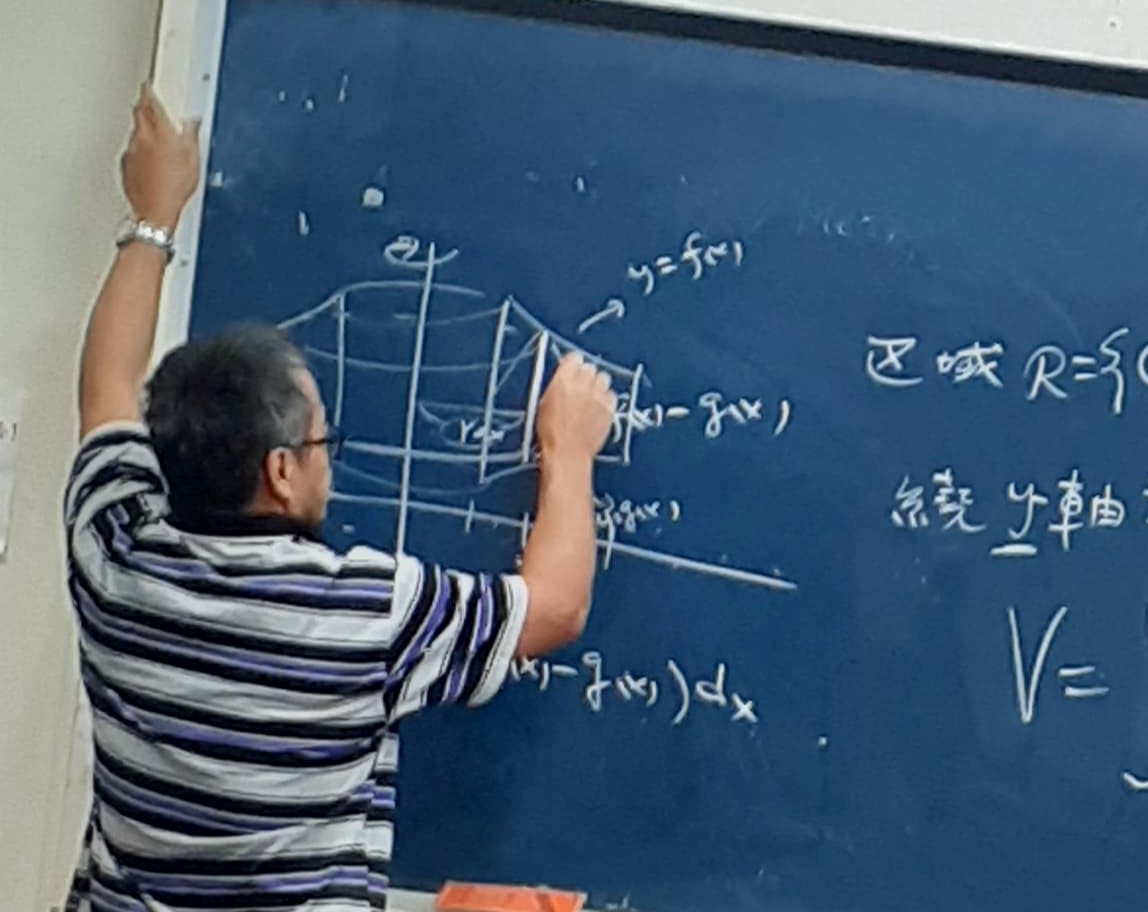 y=f(x)
f(x)-g(x)
y=g(x)
(x)-g(x))dx
区域 R={(
繞 y軸
V=